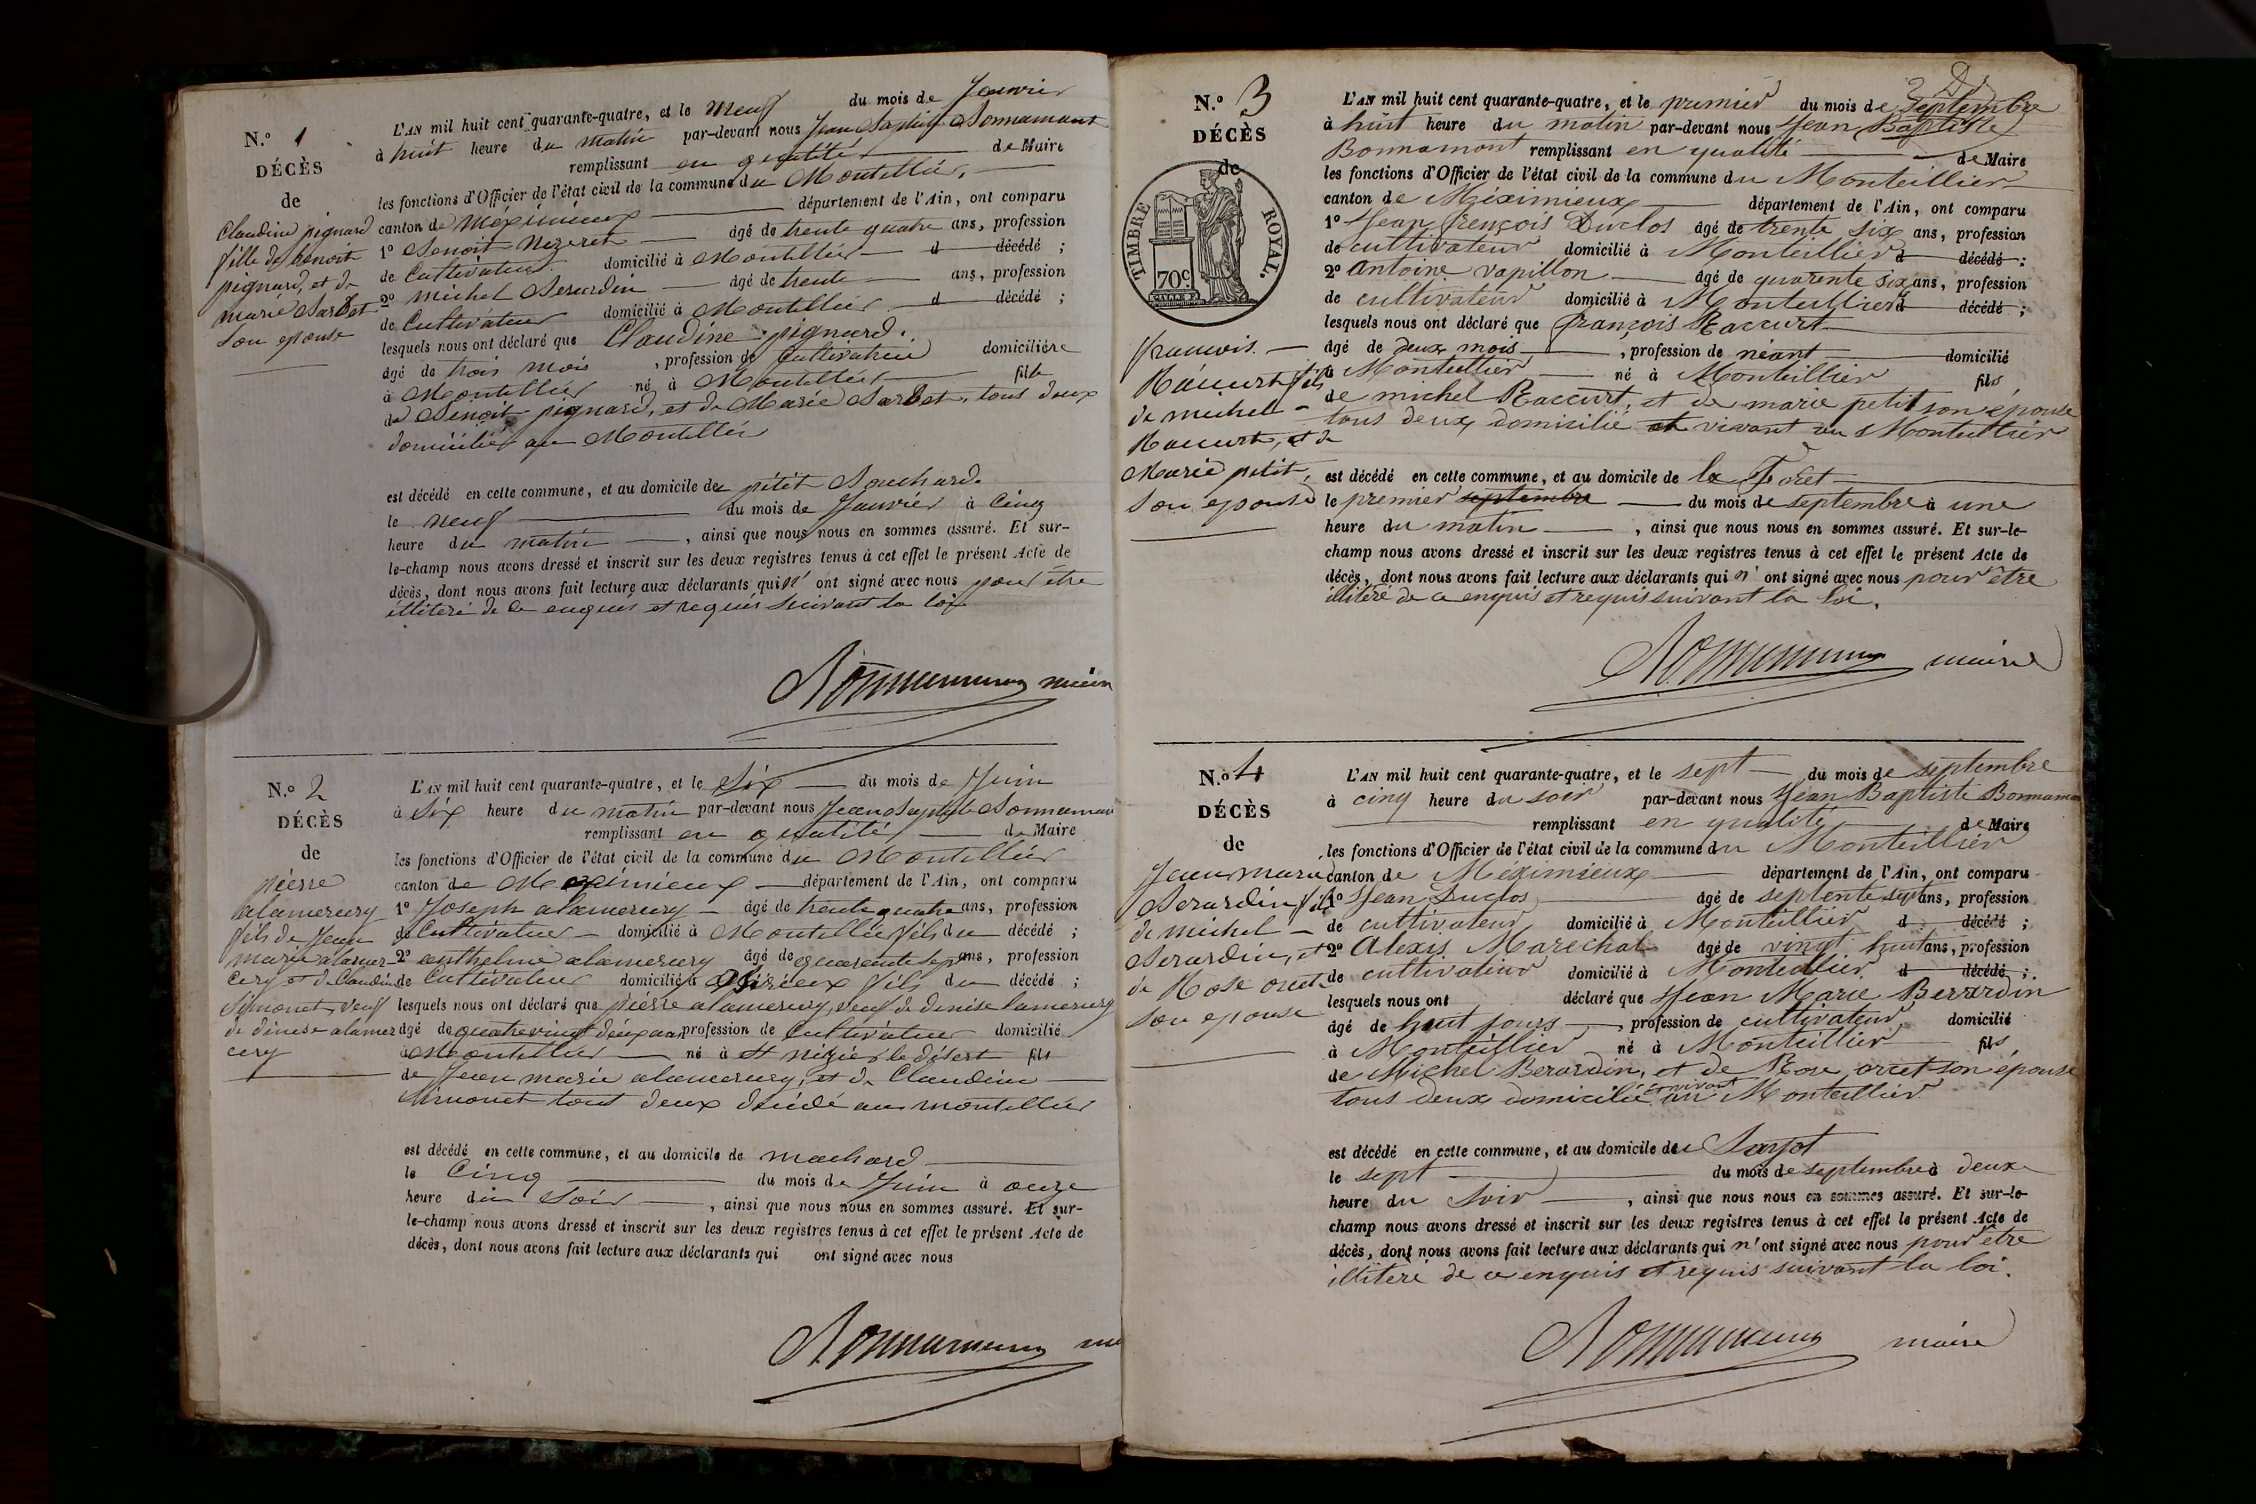 N.º 1
DÉCÈS
de
Claudine pignard
fille de benoit
pignard, et de
marie Sarbet
Son epouse
L'AN mil huit cent quarante-quatre, et le neuf du mois de Janvier
à huit heure du matin par-devant nous Jean Baptiste Bonnamant
remplissant en qualité de Maire
les fonctions d'Officier de l'état civil de la commune du Montellier,
canton de Méximieux département de l'Ain, ont comparu
1º Benoit Nezeret âgé de trente quatre ans, profession
de Cultivateur domicilié à Montellier d décédé ;
2º michel Berardin âgé de trente ans, profession
de Cultivateur domicilié à Montellier d décédé ;
lesquels nous ont déclaré que Claudine pignard.
âgé de trois mois , profession de Cultivateur domiciliére
à Montellier né à Montellier fille
de Benoit pignard, et de Marie Sarbet, tous deux
domicilier au Montellier
est décédé en cette commune, et au domicile deu pétit Souchard.
le neuf du mois de Janvier à Cinq
heure du matin , ainsi que nous nous en sommes assuré. Et sur-
le-champ nous avons dressé et inscrit sur les deux registres tenus à cet effet le présent Acte de
décès, dont nous avons fait lecture aux déclarants qui n' ont signé avec nous pour être
illitéré de ce enquis et requis suivant la loi
Bonnamant maire
N.º 2
DÉCÈS
de
pierre
alamercery
fils de Jean
marie alamer-
cery et de Claudine
Simonet, veuf
de dénise alamer
cery
L'AN mil huit cent quarante-quatre, et le Six du mois de Juin
à Six heure du matin par-devant nous Jean Baptiste Bonnamant
remplissant en qualité de Maire
les fonctions d'Officier de l'état civil de la commune du Montellier
canton de Meximieux département de l'Ain, ont comparu
1º Joseph alamercery âgé de trente quatre ans, profession
de Cultivateur domicilié à Montellier fils du décédé ;
2º anthelme alamercery âgé de quarante sept ans, profession
de Cultivateur domicilié à fils du décédé ;
lesquels nous ont déclaré que pierre alamercery, veuf de denise lamercery
âgé de quatre vingt deux ans, profession de Cultivateur domicilié
à Montellier né à St nizier le désert fils
de Jean marie alamercery, et de Claudine
Simonet tous deux décédé au montellier
est décédé en cette commune, et au domicile de machard
le Cinq du mois de Juin à onze
heure du Soir , ainsi que nous nous en sommes assuré. Et sur-
le-champ nous avons dressé et inscrit sur les deux registres tenus à cet effet le présent Acte de
décès, dont nous avons fait lecture aux déclarants qui ont signé avec nous
Bonnamant
N.º 3
DÉCÈS
de
TIMBRE ROYAL.
70 c.
francois
Raccurt fils
de michel
Raccurt, et de
Marie petit,
Son epouse
L'AN mil huit cent quarante-quatre, et le premier du mois de septembre
à huit heure du matin par-devant nous Jean Baptiste
Bonnamont remplissant en qualité de Maire
les fonctions d'Officier de l'état civil de la commune du Monteillier
canton de Méximieux département de l'Ain, ont comparu
1º Jean françois Duclos âgé de trente six ans, profession
de cultivateur domicilié à Monteillier d décédé ;
2º Antoine vapillon âgé de quarente six ans, profession
de cultivateur domicilié à Monteillier d décédé ;
lesquels nous ont déclaré que françois Raccurt
âgé de deux mois , profession de néant domicilié
à Monteillier né à Monteillier fils
de michel Raccurt, et de marie petit son épouse
tous deux domicilié et vivant au Monteillier
est décédé en cette commune, et au domicile de la Foret
le premier septembre du mois de septembre à une
heure du matin , ainsi que nous nous en sommes assuré. Et sur-le-
champ nous avons dressé et inscrit sur les deux registres tenus à cet effet le présent Acte de
décès, dont nous avons fait lecture aux déclarants qui n' ont signé avec nous pour être
illitéré de ce enquis et requis suivant la loi.
Bonnamant maire
N.º 4
DÉCÈS
de
Jean marie
Berardin fils
de michel
Berardin, et
de Rose oret
Son epouse
L'AN mil huit cent quarante-quatre, et le sept du mois de septembre
à cinq heure du soir par-devant nous Jean Baptiste Bonnamon
remplissant en qualité de Maire
les fonctions d'Officier de l'état civil de la commune du Monteillier
canton de Méximieux département de l'Ain, ont comparu
1º Jean Duclos âgé de septente sept ans, profession
de cultivateur domicilié à Monteillier d décédé ;
2º Alexis Marechal âgé de vingt huit ans, profession
de cultivateur domicilié à Monteillier d décédé ;
lesquels nous ont déclaré que Jean Marie Berardin
âgé de huit jours , profession de cultivateur domicilié
à Monteillier né à Monteillier fils
de Michel Berardin, et de Rose orcet son épouse
tous deux domicilié et vivant au Monteillier
est décédé en cette commune, et au domicile deu Sarjot
le sept du mois de septembre à deux
heure du Soir , ainsi que nous nous en sommes assuré. Et sur-le-
champ nous avons dressé et inscrit sur les deux registres tenus à cet effet le présent Acte de
décès, dont nous avons fait lecture aux déclarants qui n' ont signé avec nous pour etre
illitéré de ce enquis et requis suivant la loi.
Bonnamant maire